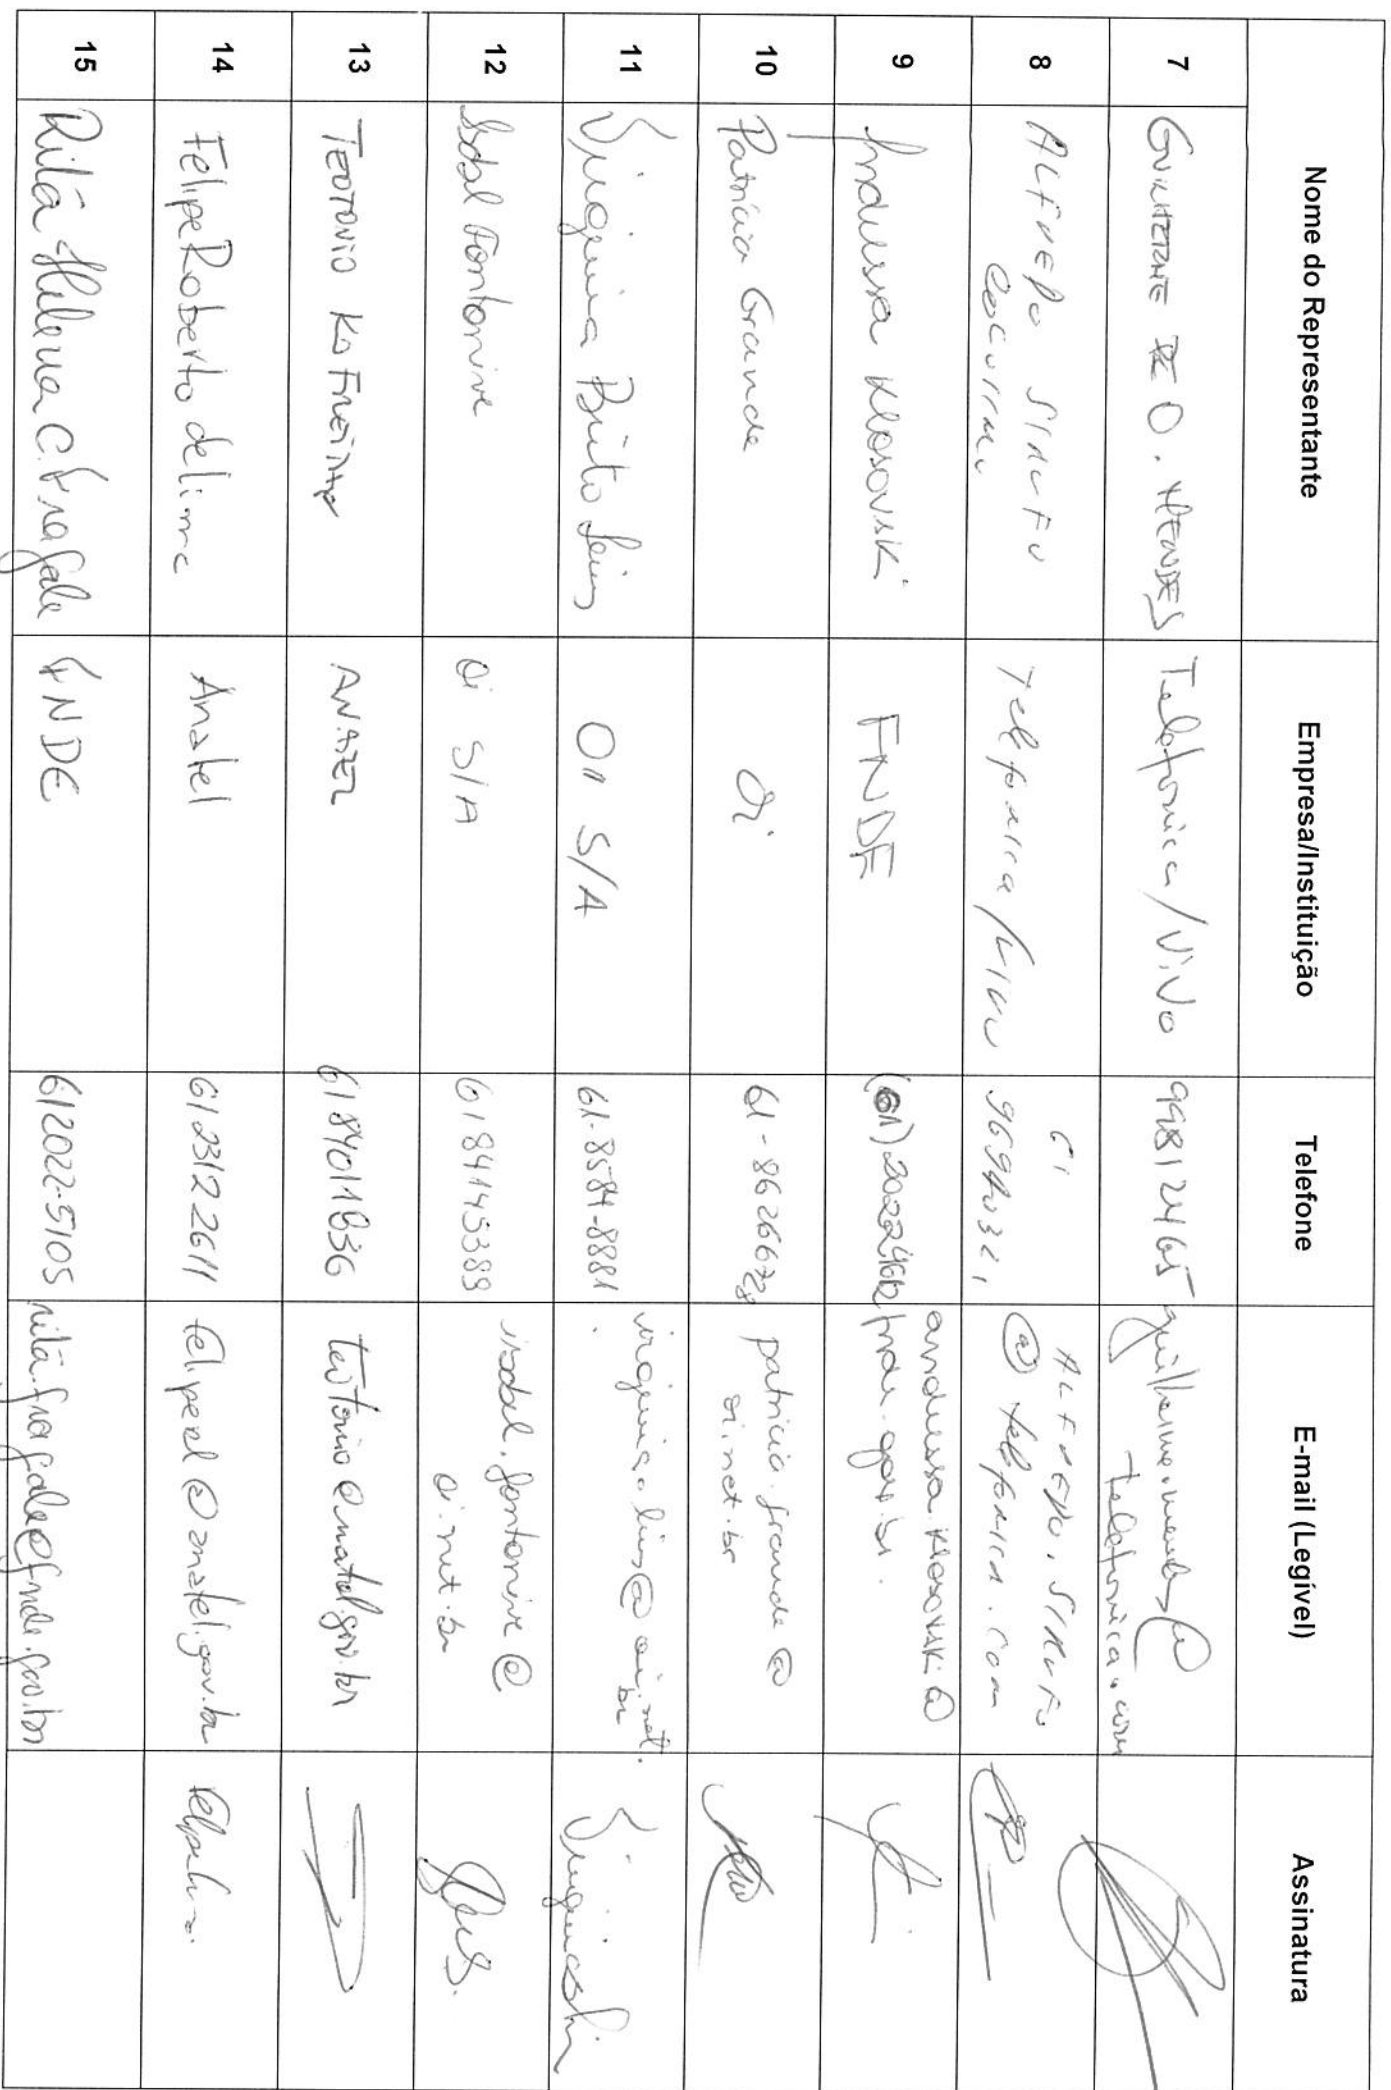 Nome do Representante Empresa/Instituição Telefone E-mail (Legível) Assinatura
7 GUILHERME DE O. MENDES Telefonica/VIVO 998124165 guilherme.mendes@
telefonica.com
8 ALFREDO 61 ALFREDO.
Telefonica/ @telefonica.com
9 Andressa Klosovski FNDE (61) andressa.klosovski@
fnde.gov.br.
10 Patrícia Grande Oi 61-86266728 patricia.grande@
oi.net.br
11 Virginia Brito Lins OI S/A 61-8584-8881 virginia.lins@oi.net.
br
12 Isabel Fontonive Oi S/A 6184145389 isabel.fontonive@
oi.net.br
13 TEOTONIO ANATEL teotonio@anatel.gov.br
14 Felipe Roberto de Lima Anatel 6123122611 felipeel@anatel.gov.br
15 Rita Helena C. Fragale FNDE 612022-5105 rita.fragale@fnde.gov.br